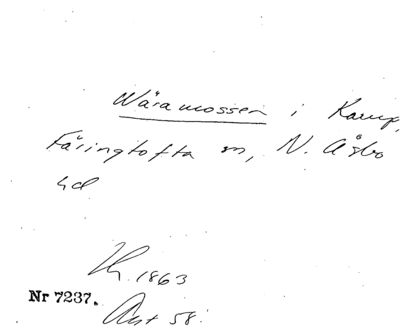 Wäramossen i Kamp,
Färingtofta sn, N. Åsbo
hd
1863
Nr 7237.
58.